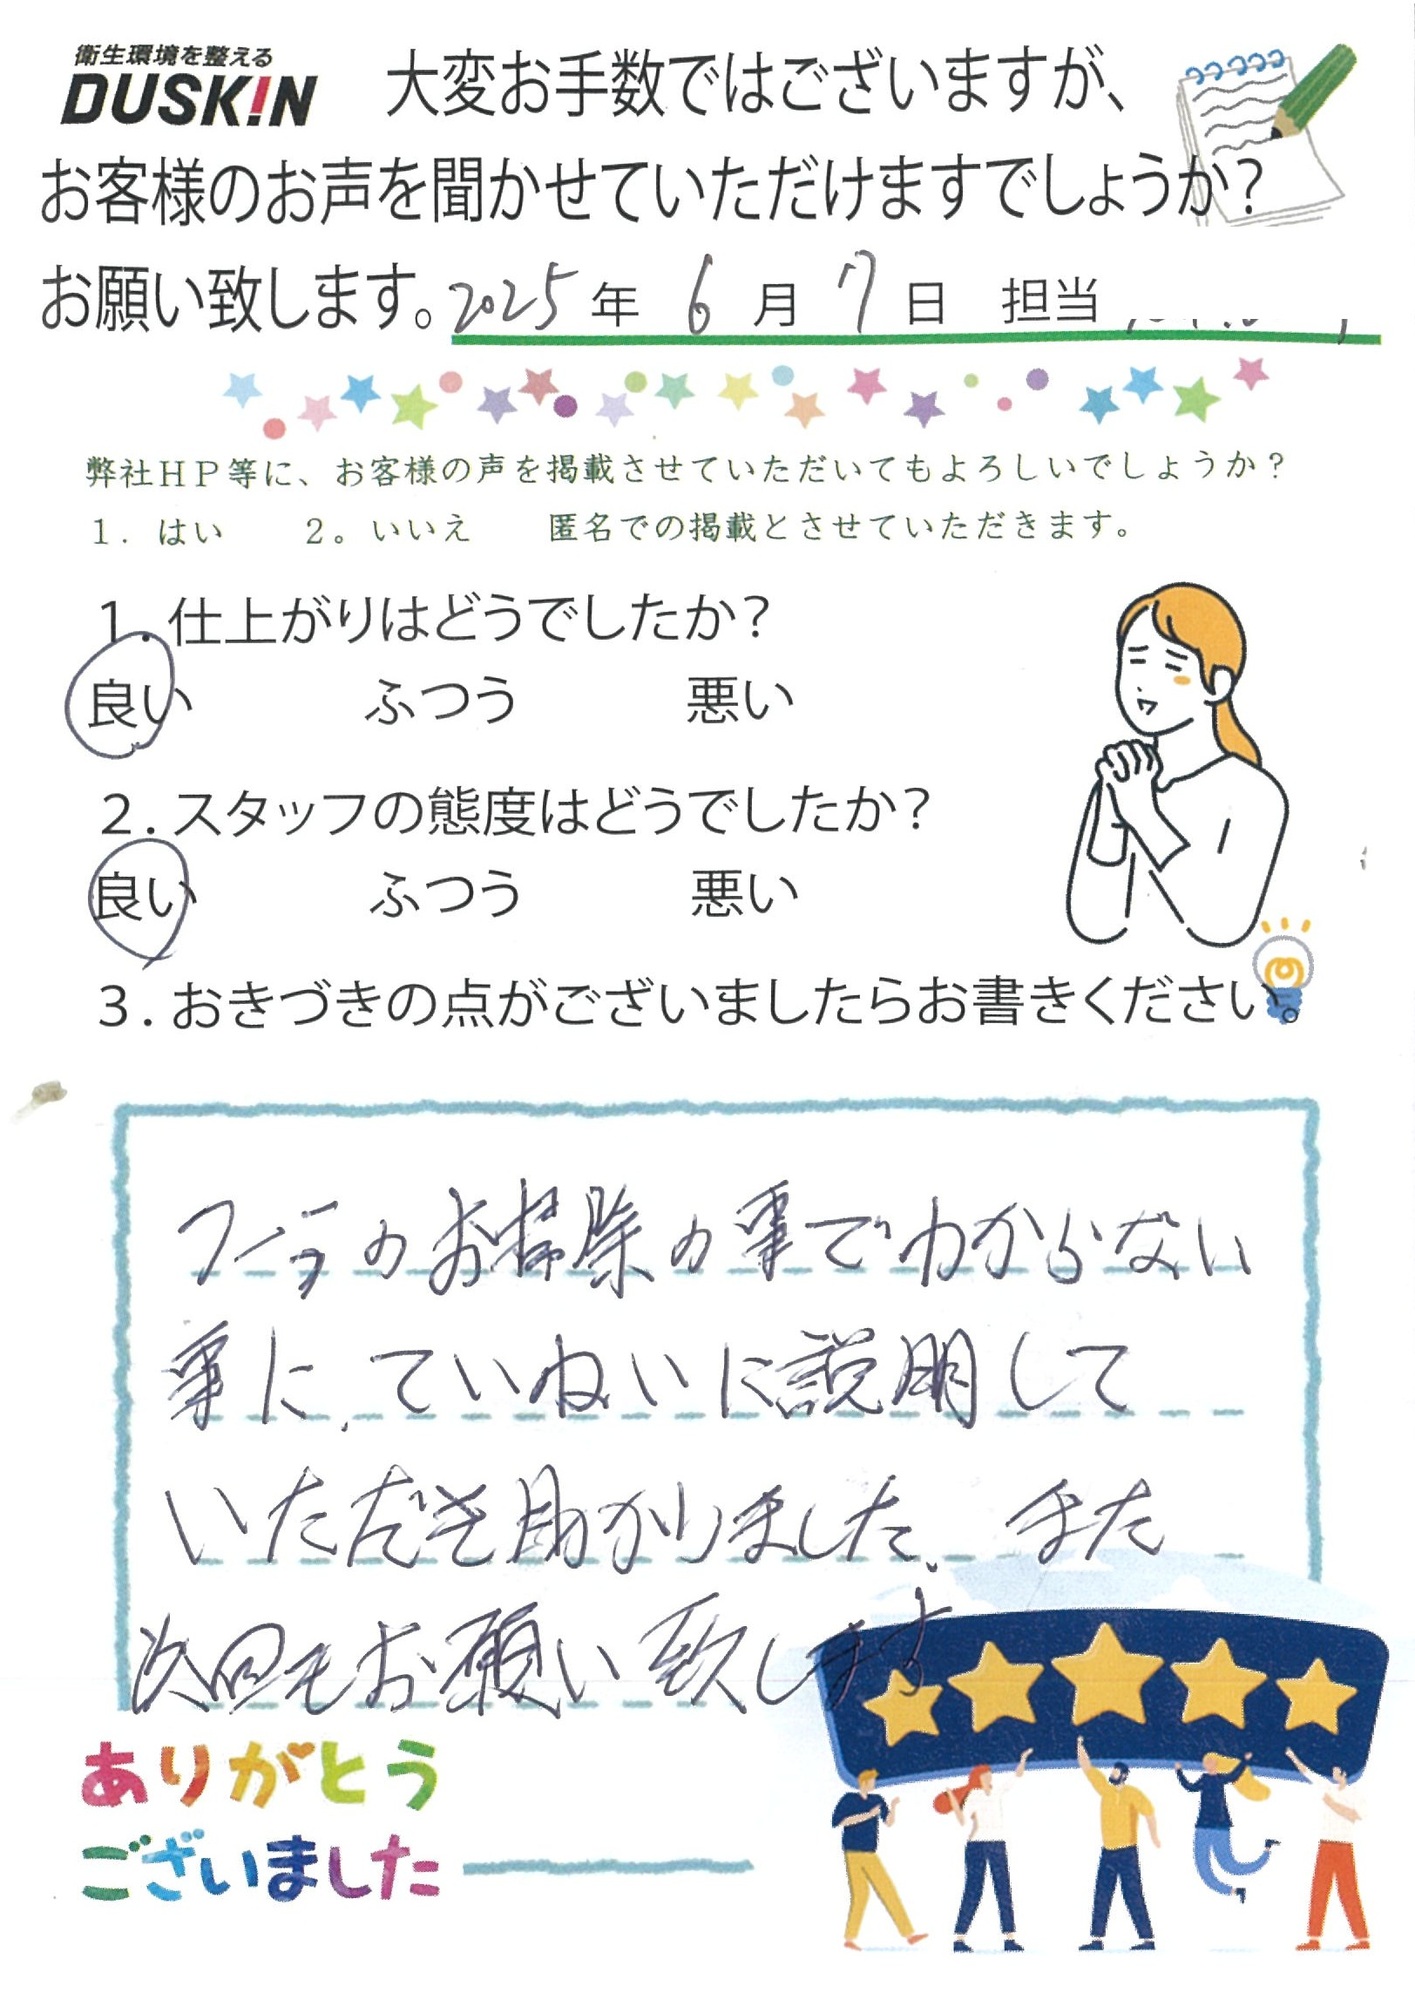 衛生環境を整える
DUSKIN
大変お手数ではございますが、
お客様のお声を聞かせていただけますでしょうか?
お願い致します。2025年 6月 7日 担当
弊社HP等に、お客様の声を掲載させていただいてもよろしいでしょうか?
1. はい 2。いいえ 匿名での掲載とさせていただきます。
1.仕上がりはどうでしたか?
良い ふつう 悪い
2.スタッフの態度はどうでしたか?
良い ふつう 悪い
3.おきづきの点がございましたらお書きください。
の お掃除の事でわからない
事に、ていねいに説明して
いただき助かりました。また
次回もお願い致します
ありがとう
ございました